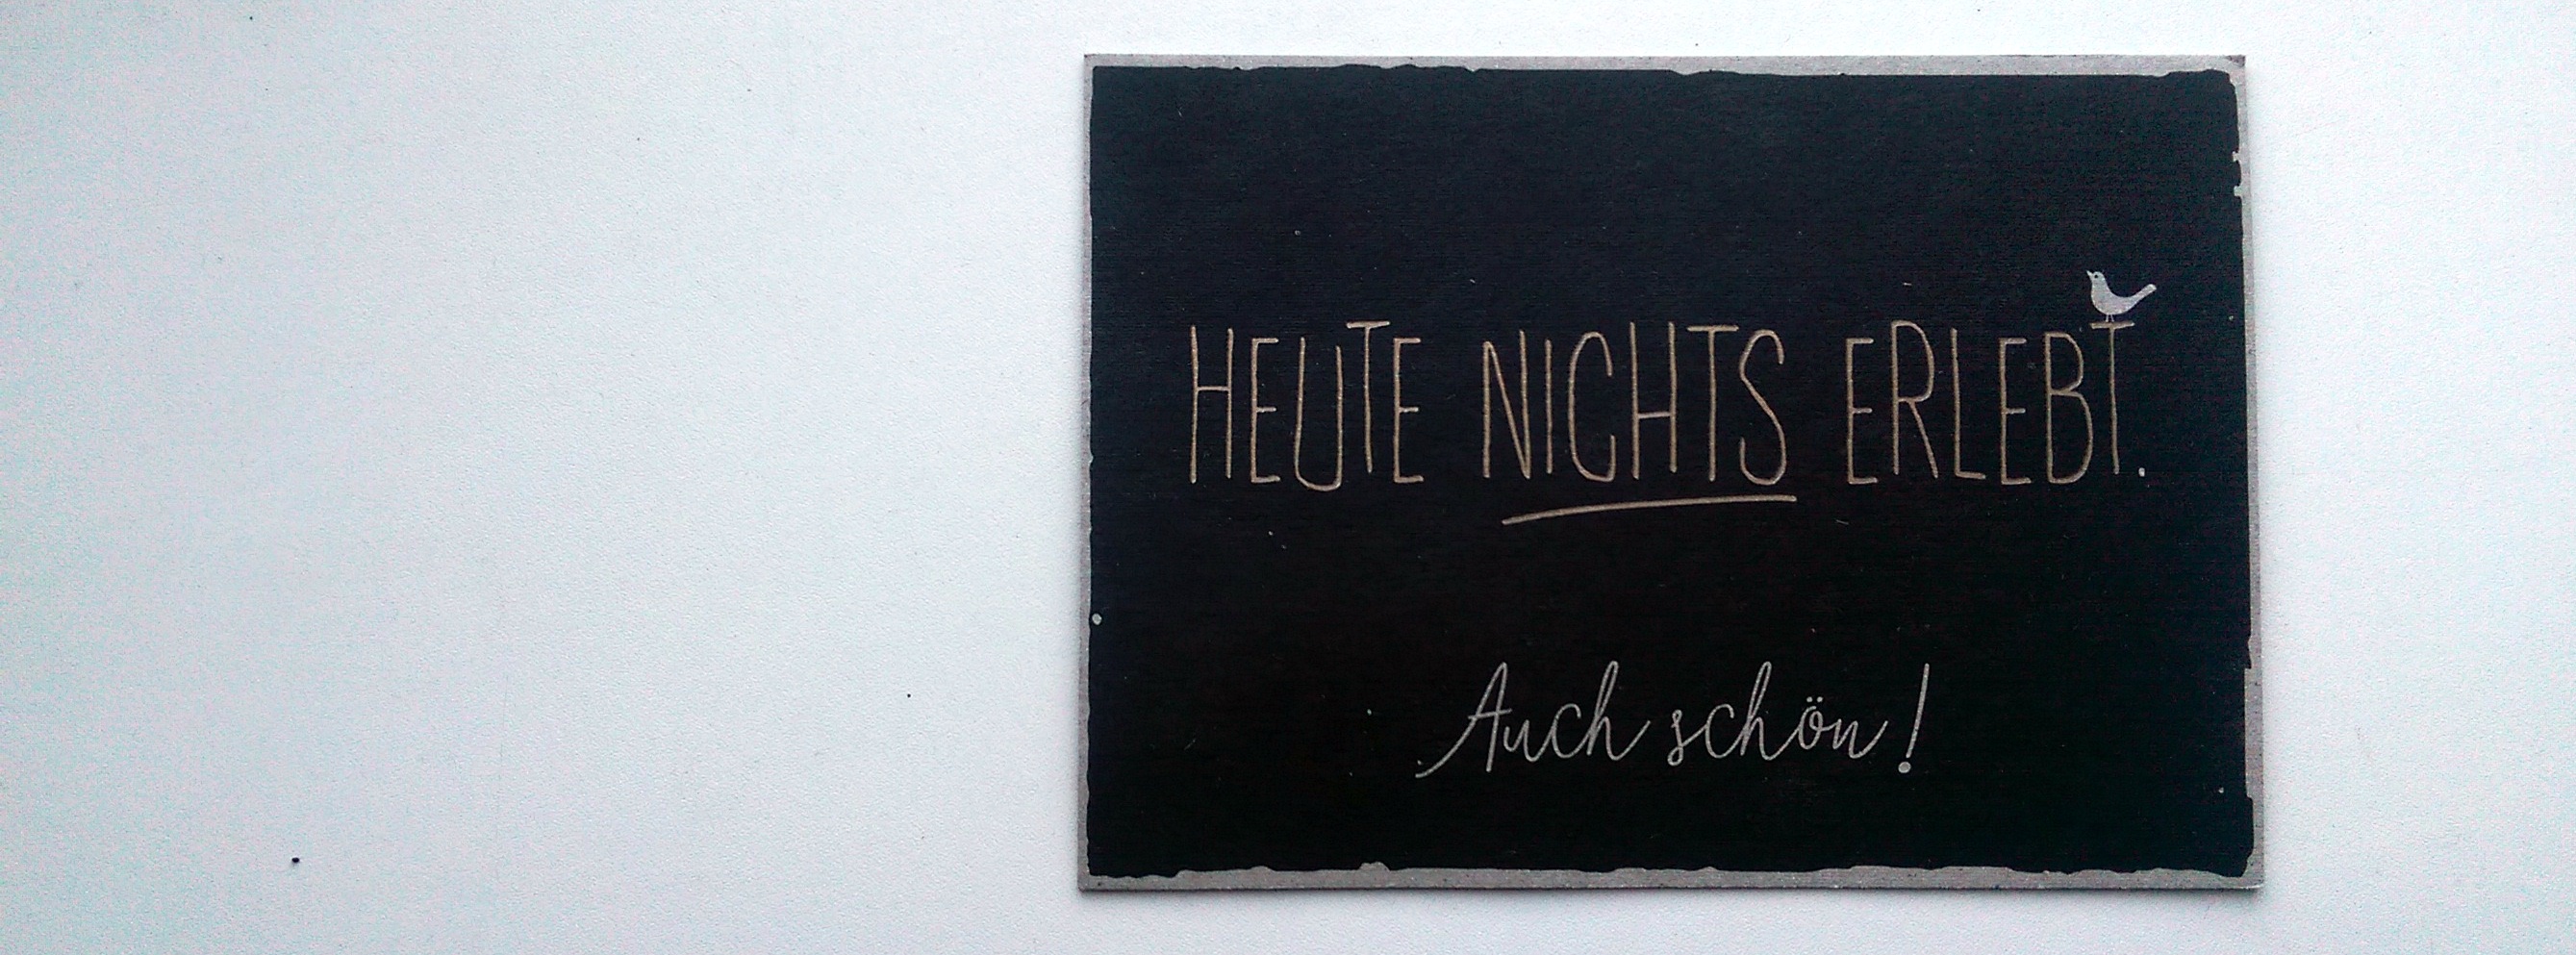 HEUTE NICHTS ERLEBT.
Auch schön!